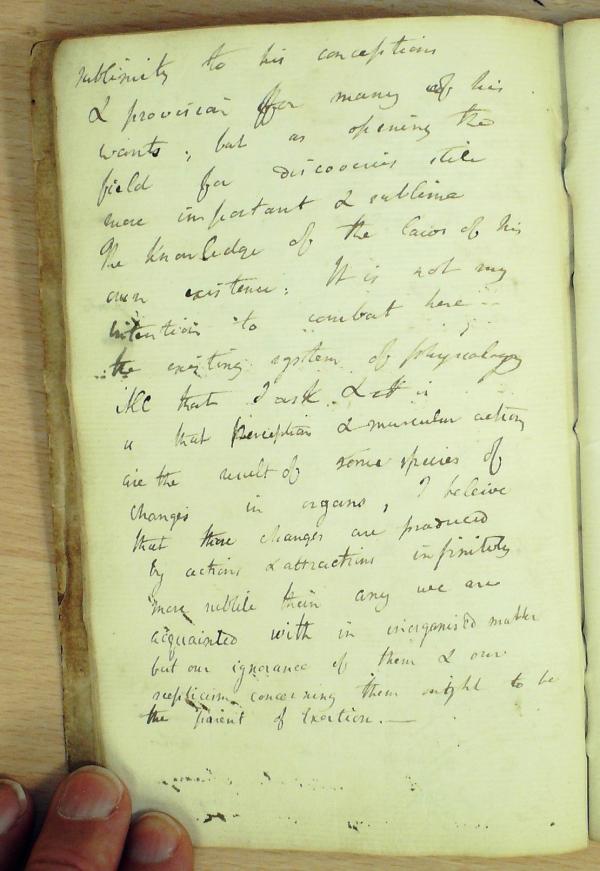 sublimity to his conceptions
& provision for many of his
wants; but as opening the
field for discoveries still
more important & sublime
the knowledge of the laws of his
own existence; It is not my
intention to combat here
the existing system of physiology
All that I ask &
is that perception & muscular action
are the result of some species of
changes in organs, I beleive
that these changes are produced
by actions & attractions infinitely
more subtile than any we are
acquainted with in inorganised matter
but our ignorance of them & our
scepticism concerning them ought to be
the parent of Exertion. —